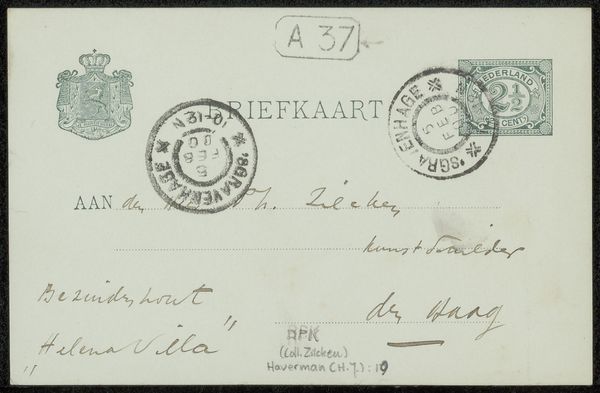 A 37
BRIEFKAART
NEDERLAND
2½
CENT
'SGRAVENHAGE
5 FEB
'SGRAVENHAGE
5 FEB 00
10-12 N
AAN den Heer Ph. Zilcken
kunstschilder
Bezuidenhout
den Haag
"Helena Villa"
RPK
(Coll. Zilcken)
Haverman (H.J.): 10